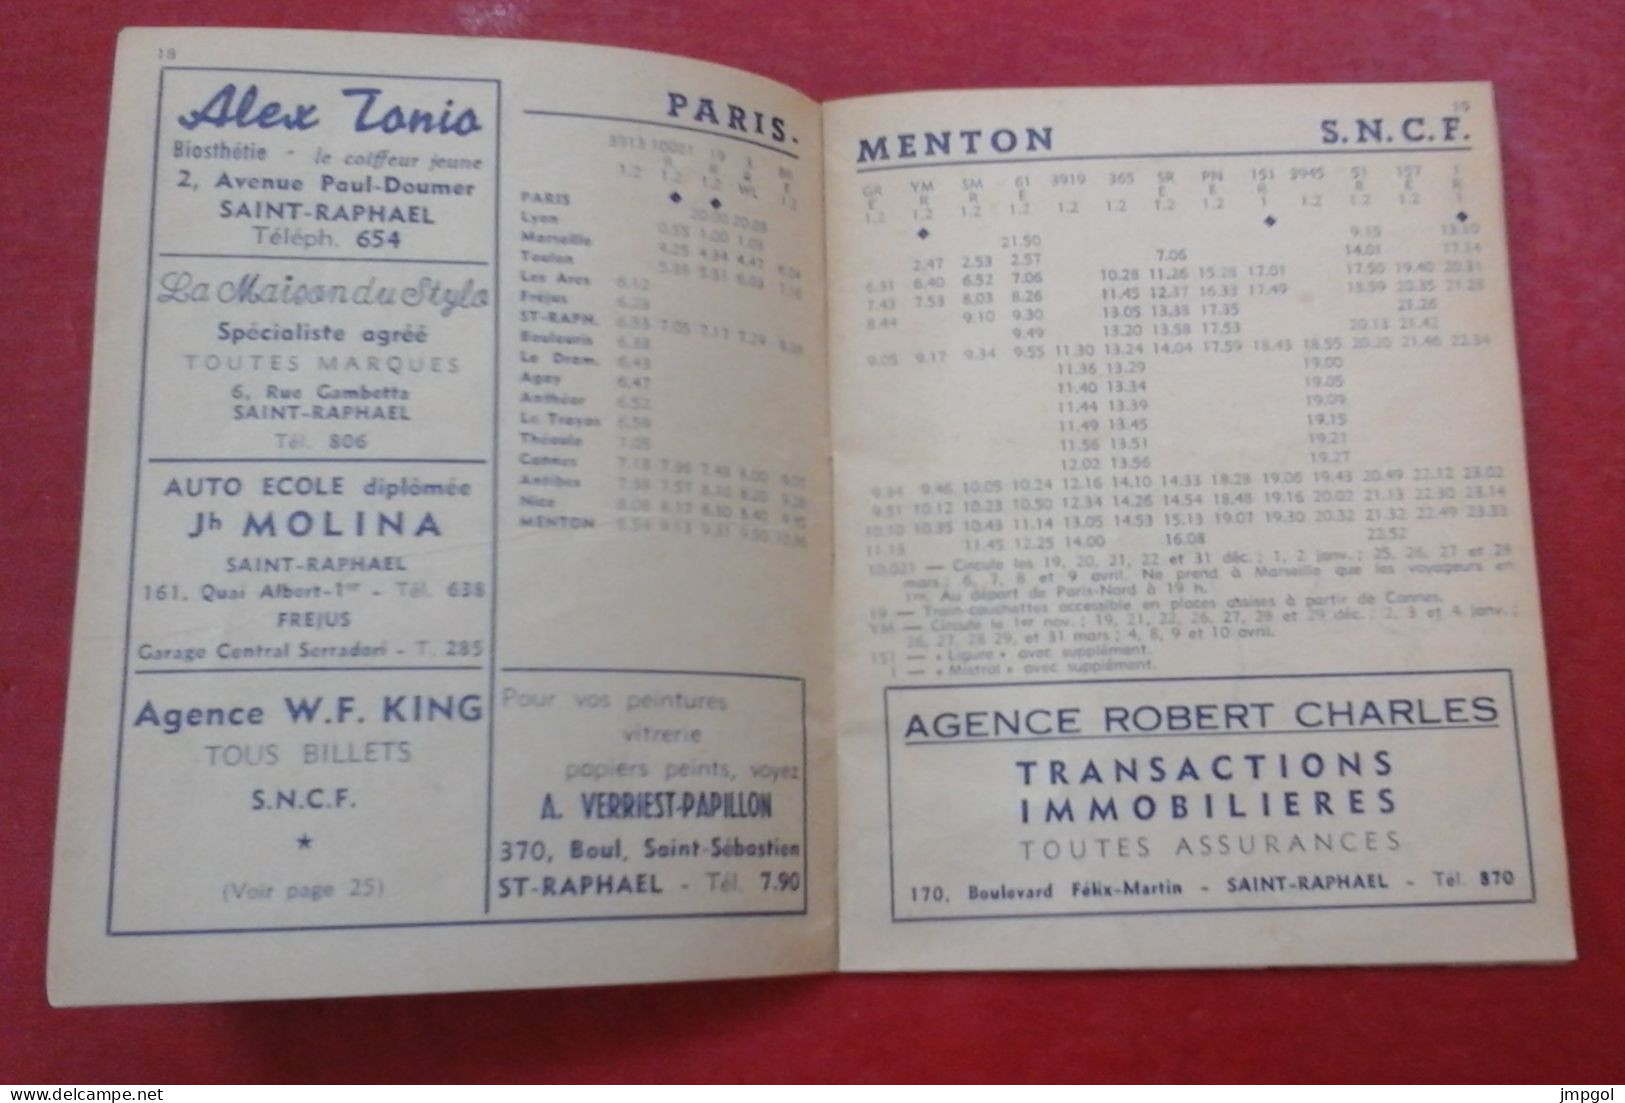 18
Alex Tonio
Biosthétie - le coiffeur jeune
2, Avenue Paul-Doumer
SAINT-RAPHAEL
Téléph. 654
La Maison du Stylo
Spécialiste agréé
TOUTES MARQUES
6, Rue Gambetta
SAINT-RAPHAEL
Tél. 806
AUTO ECOLE diplômée
Jh MOLINA
SAINT-RAPHAEL
161, Quai Albert-1er - Tél. 638
FREJUS
Garage Central Serradori - T. 285
Agence W.F. KING
TOUS BILLETS
S.N.C.F.
★
(Voir page 25)
PARIS.
3913 10021 19
PARIS
Lyon
Marseille
Toulon
Les Arcs 6.12
Fréjus 6.28
ST-RAPH. 6.33 7.05 7.17 7.29
Boulouris 6.38
Le Dram. 6.43
Agay 6.47
Anthéor 6.52
Le Trayas 6.59
Théoule 7.05
Cannes
Antibes
Nice
MENTON
Pour vos peintures
vitrerie
papiers peints, voyez
A. VERRIEST-PAPILLON
370, Boul. Saint-Sébastien
ST-RAPHAEL - Tél. 7.90
19
MENTON S.N.C.F.
GR YM SM 61 3919 365 SR PN 151 3945 51 157 1
E R R E E E R R E R
1.2 1.2 1.2 1.2 1.2 1.2 1.2 1.2 1 1.2 1.2 1.2 1
21.50 9.15 13.10
2.47 2.53 2.57 7.06 14.01
6.31 6.40 6.52 7.06 10.28 11.26 15.28 17.01 17.50 19.40 20.31
7.43 7.53 8.03 8.26 11.45 12.37 16.33 17.49 18.59 20.35 21.28
8.44 9.10 9.30 13.05 13.38 17.35 21.26
9.49 13.20 13.58 17.53 20.13 21.42
9.05 9.17 9.34 9.55 11.30 13.24 14.04 17.59 18.43 18.55 20.20 21.46 22.34
11.36 13.29 19.00
11.40 13.34 19.05
11.44 13.39 19.09
11.49 13.45 19.15
11.56 13.51 19.21
12.02 13.56 19.27
9.34 9.46 10.05 10.24 12.16 14.10 14.33 18.28 19.06 19.43 20.49 22.12 23.02
9.51 10.12 10.23 10.50 12.34 14.26 14.54 18.48 19.16 20.02 21.13 22.30 23.14
10.10 10.35 10.43 11.14 13.05 14.53 15.13 19.07 19.30 20.32 21.32 22.49 23.33
11.13 11.45 12.25 14.00 16.08 22.52
10.021 — Circule les 19, 20, 21, 22 et 31 déc. ; 1, 2 janv. ; 25, 26, 27 et 28
mars ; 6, 7, 8 et 9 avril. Ne prend à Marseille que les voyageurs en
1re. Au départ de Paris-Nord à 19 h.
19 — Train-couchettes accessible en places assises à partir de Cannes.
YM — Circule le 1er nov. ; 19, 21, 22, 26, 27, 28 et 29 déc. ; 2, 3 et 4 janv. ;
26, 27, 28 29, et 31 mars ; 4, 8, 9 et 10 avril.
151 — « Ligure » avec supplément.
1 — « Mistral » avec supplément.
AGENCE ROBERT CHARLES
TRANSACTIONS
IMMOBILIERES
TOUTES ASSURANCES
170, Boulevard Félix-Martin - SAINT-RAPHAEL - Tél. 870
jmpgol